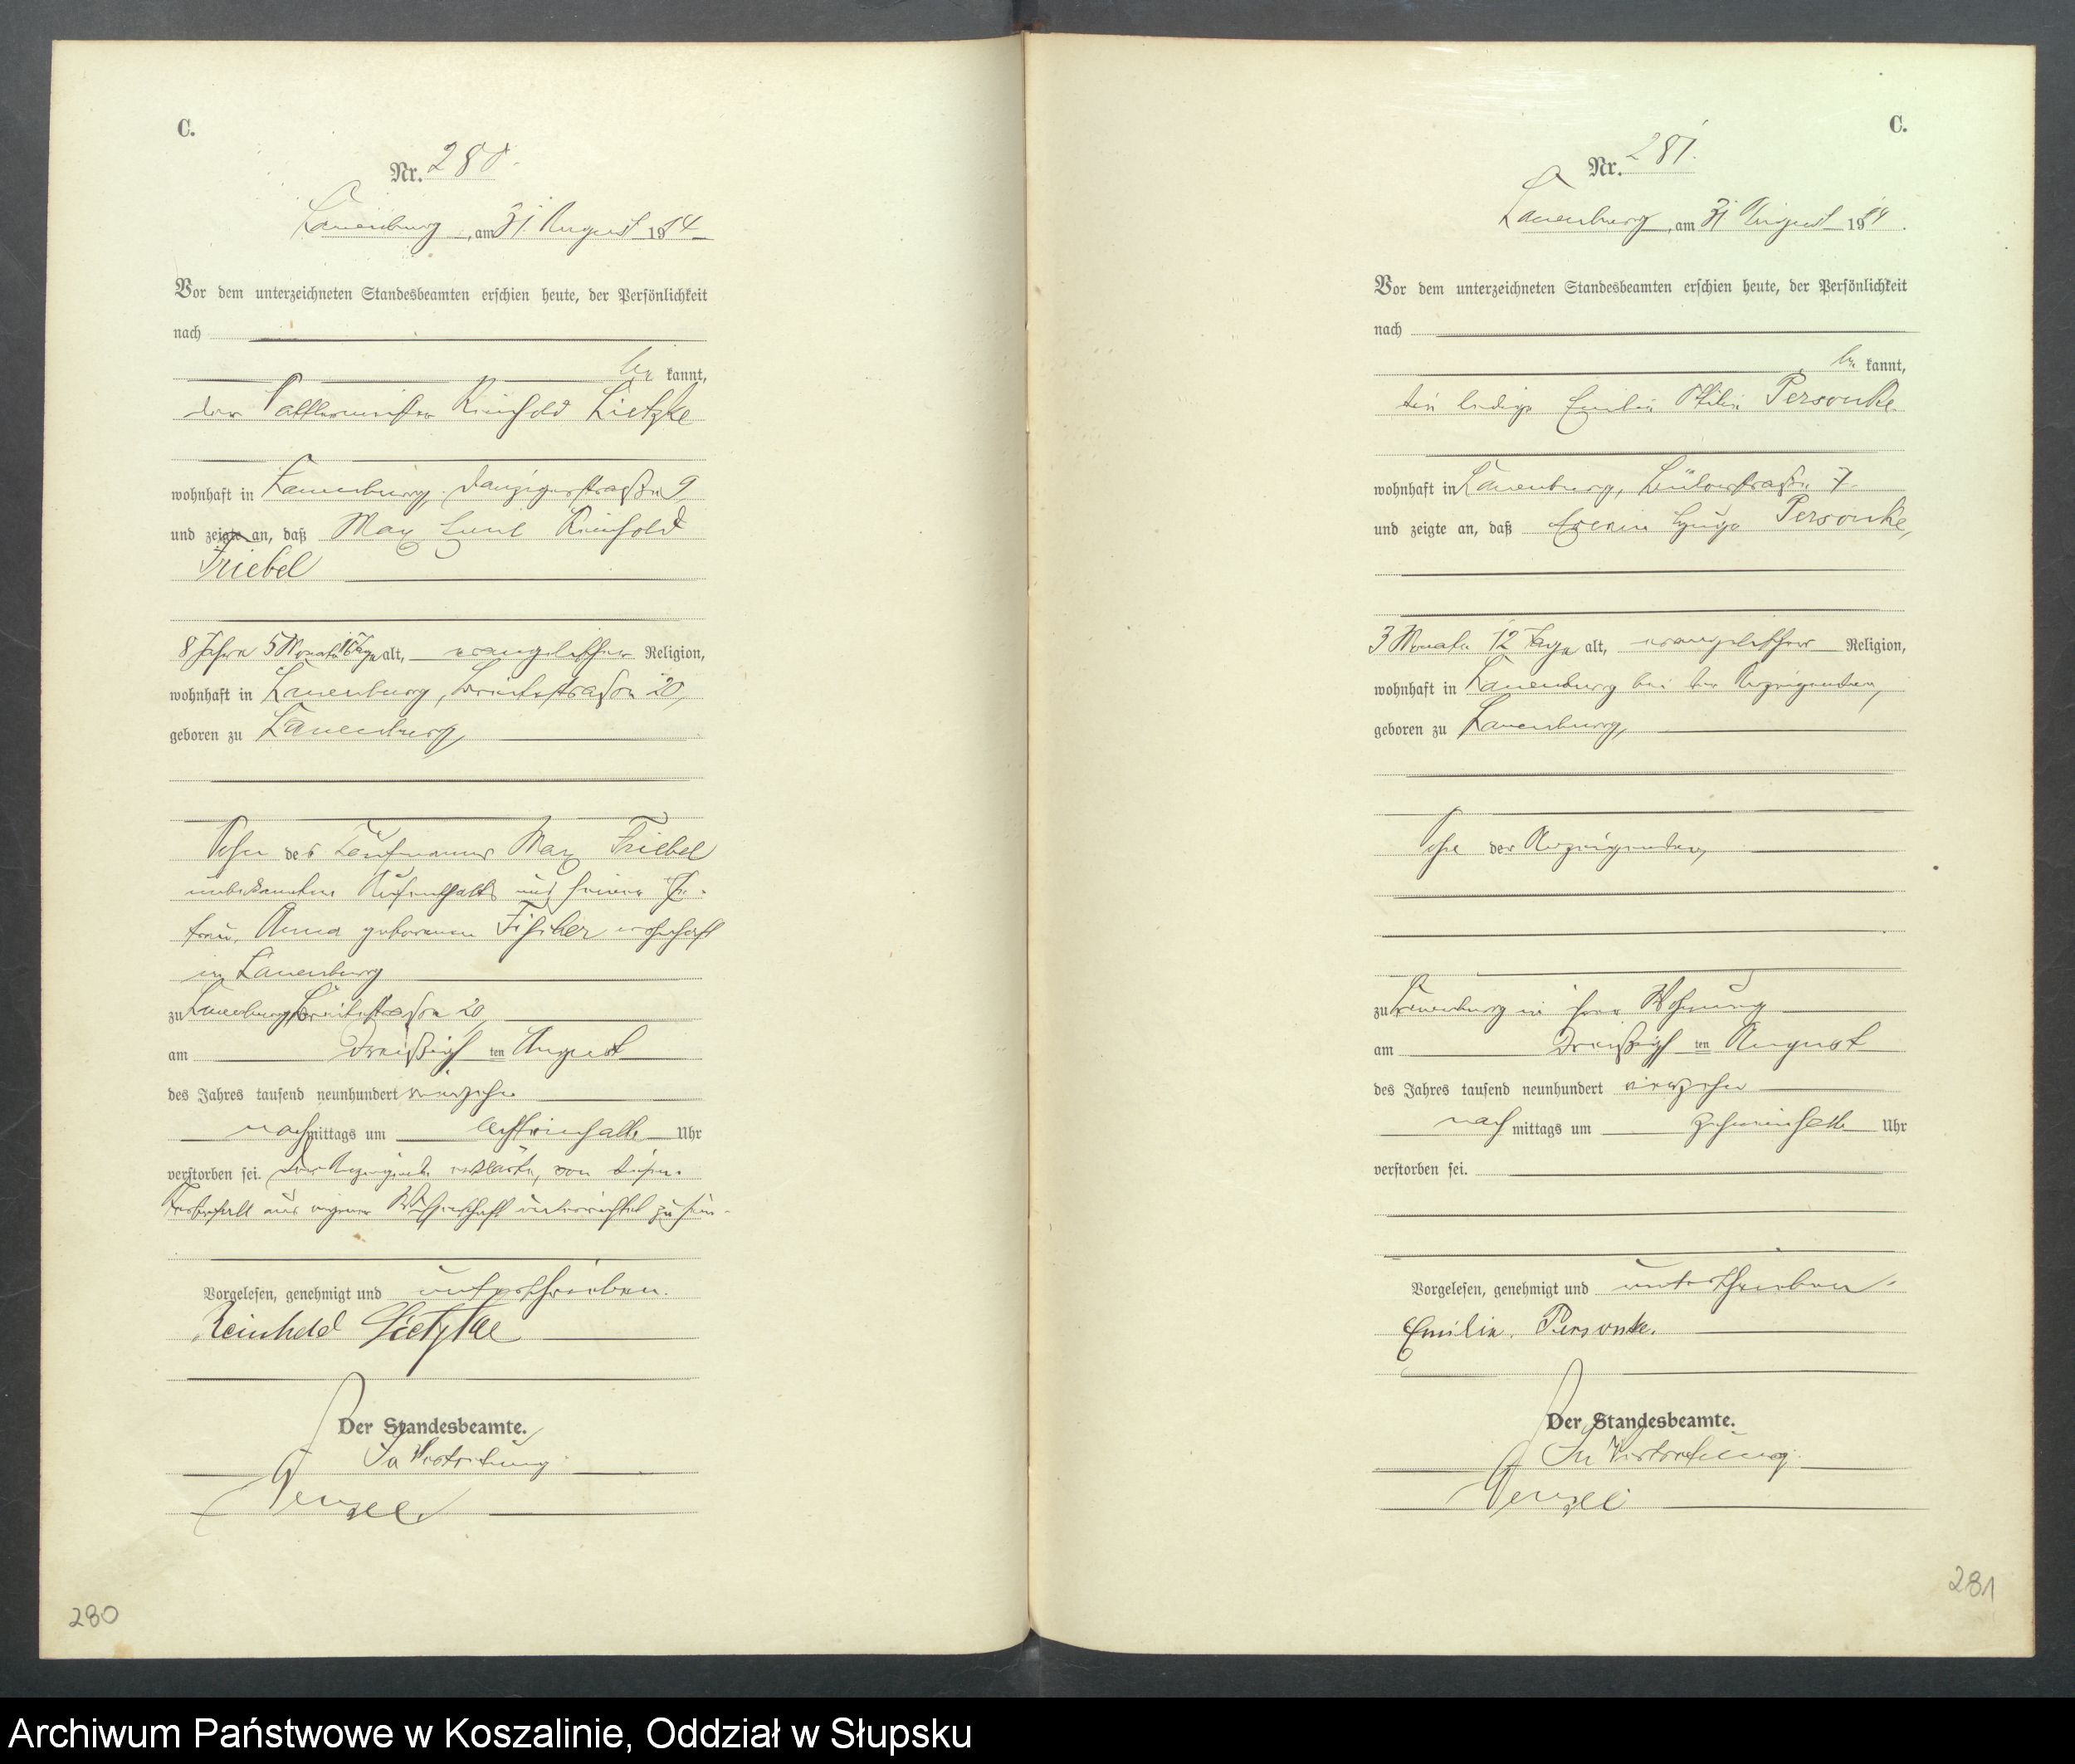 C.
Nr. 280.
Lauenburg, am 31. August 1914
Vor dem unterzeichneten Standesbeamten erschien heute, der Persönlichkeit
nach
be kannt,
der Sattlermeister Reinhold Lietzke
wohnhaft in Lauenburg, Danzigerstraße 9
und zeigte an, daß Max Emil Reinhold
Friebel
8 Jahre 5 Monate Tage alt, evangelischer Religion,
wohnhaft in Lauenburg, straße 20,
geboren zu Lauenburg,
Sohn des Kaufmanns Max Friebel
unbekannten Aufenthalts und seiner Ehe-
frau, Anna geborenen Fischer wohnhaft
in Lauenburg
zu Lauenburg, straße 20,
am dreißigsten August
des Jahres tausend neunhundert vierzehn
nachmittags um Uhr
verstorben sei. Der Anzeigende erklärte, von diesem
Sterbefall aus eigener Wissenschaft unterrichtet zu sein.
Vorgelesen, genehmigt und unterschrieben.
Reinhold Lietzke
Der Standesbeamte.
In Vertretung.
280
C.
Nr. 281.
Lauenburg, am 31 August 1914.
Vor dem unterzeichneten Standesbeamten erschien heute, der Persönlichkeit
nach
be kannt,
die ledige Emilie Ottilie Personke
wohnhaft in Lauenburg, Bülowstraße 7
und zeigte an, daß Erwin Personke,
3 Monate 12 Tage alt, evangelischer Religion,
wohnhaft in Lauenburg bei der Anzeigenden,
geboren zu Lauenburg,
Sohn der Anzeigenden,
zu Lauenburg in ihrer Wohnung
am dreißigsten August
des Jahres tausend neunhundert vierzehn
nachmittags um zehneinhalb Uhr
verstorben sei.
Vorgelesen, genehmigt und unterschrieben.
Emilie Personke.
Der Standesbeamte.
In Vertretung.
281
Archiwum Państwowe w Koszalinie, Oddział w Słupsku